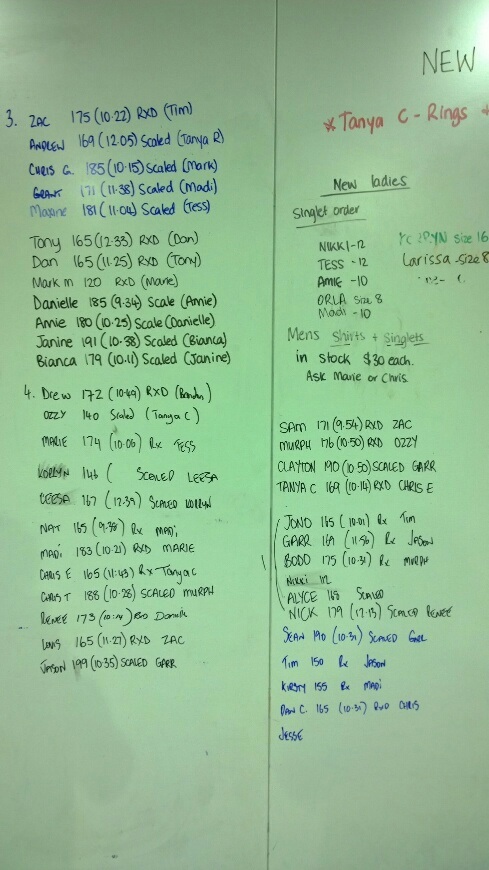 3. ZAC 175 (10.22) RXD (Tim)
ANDREW 169 (12.05) Scaled (Tanya R)
CHRIS G. 185 (10.15) Scaled (Mark)
GRANT 171 (11.38) Scaled (Madi)
Maxine 181 (11.04) Scaled (Tess)
Tony 165 (12.33) RXD (Dan)
Dan 165 (11.25) RXD (Tony)
Mark m 120 RXD (Marie)
Danielle 185 (9.34) Scale (Amie)
Amie 180 (10.25) Scale (Danielle)
Janine 191 (10.38) Scaled (Bianca)
Bianca 179 (10.11) Scaled (Janine)
4. Drew 172 (10.49) RXD
OZZY 140 Scaled (Tanya C)
MARIE 174 (10.06) Rx TESS
KORRYN 146 ( SCALED LEESA
LEESA 167 (12.39) SCALED KORRYN
NAT 165 (9.38) Rx MADi
MADi 183 (10.21) RXD MARIE
CHRIS E 165 (11.43) Rx Tanya C
CHRIS T 188 (10.28) SCALED MURPH
RENEE 173
LOUIS 165 (11.27) RXD ZAC
JASON 199 (10.35) SCALED GARR
NEW
* Tanya C - Rings *
New ladies
Singlet order
NIKKI-12
TESS -12
AMIE -10
ORLA Size 8
Madi -10
size 16
Larissa - size 8
Mens Shirts + Singlets
in stock $30 each.
Ask Marie or Chris.
SAM 171 (9.54) RXD ZAC
MURPH 176 (10.50) RXD OZZY
CLAYTON 190 (10.50) SCALED GARR
TANYA C 169 (10.14) RXD CHRIS E
JONO 165 (10.01) Rx Tim
GARR 169 (11.56) Rx JASON
BODD 175 (10.31) Rx MURPH
Nikki 112
ALYCE 168 SCALED
NICK 179 (12.13) SCALED RENEE
SEAN 190 (10.31) SCALED GARR
Tim 150 Rx JASON
KIRSTY 155 Rx MADi
DAN C. 165 (10.31) RXD CHRIS
JESSE